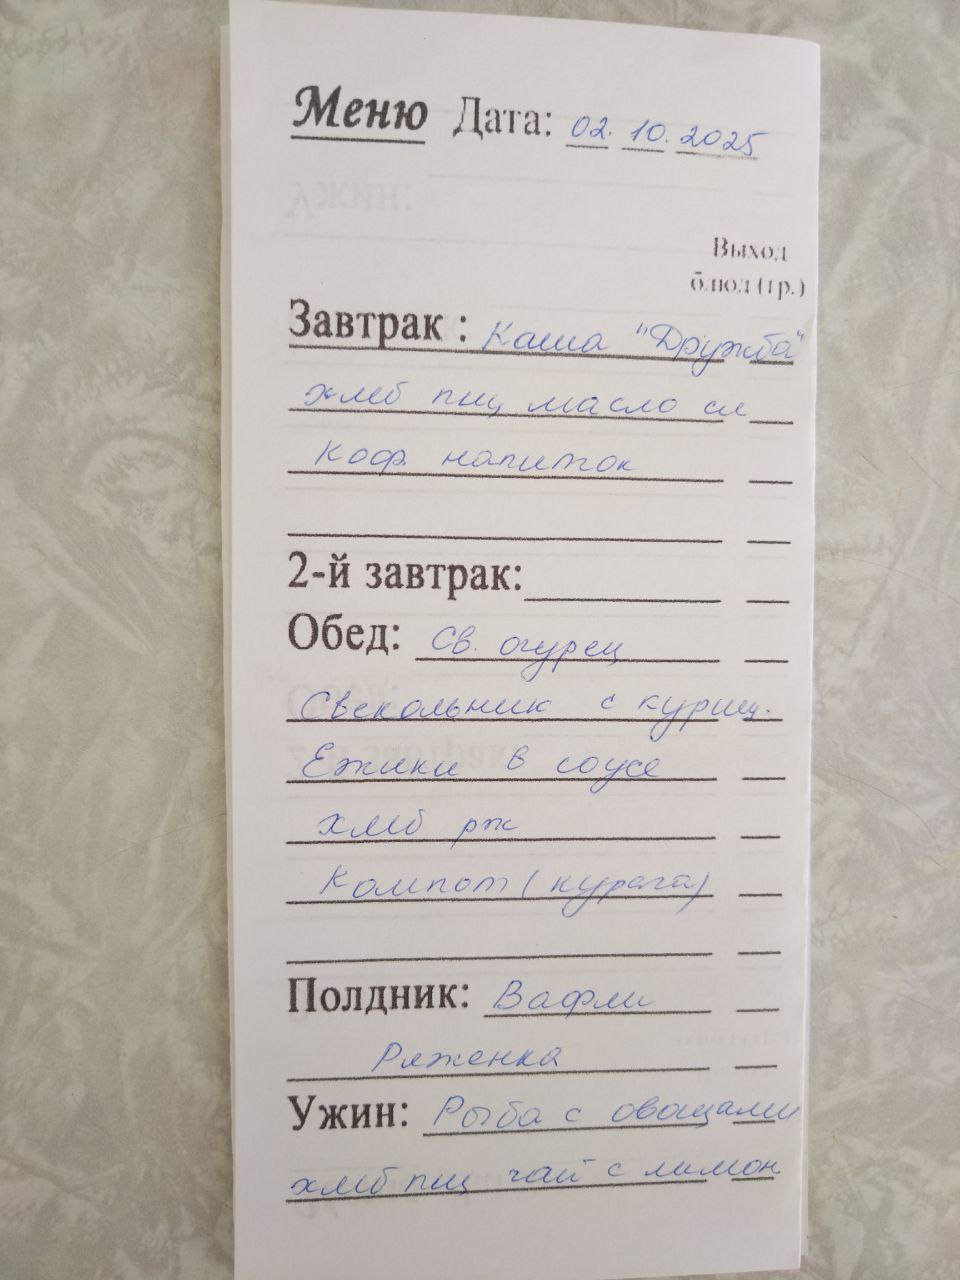 Меню Дата: 02. 10. 2025
Выход
блюд (гр.)
Завтрак : Каша "Дружба"
хлеб пш масло сл
коф напиток
2-й завтрак:
Обед: Св. огурец
Свекольник с куриц.
Ежики в соусе
хлеб рж
Компот (курага)
Полдник: Вафли
Ряженка
Ужин: Рыба с овощами
хлеб пш чай с лимон